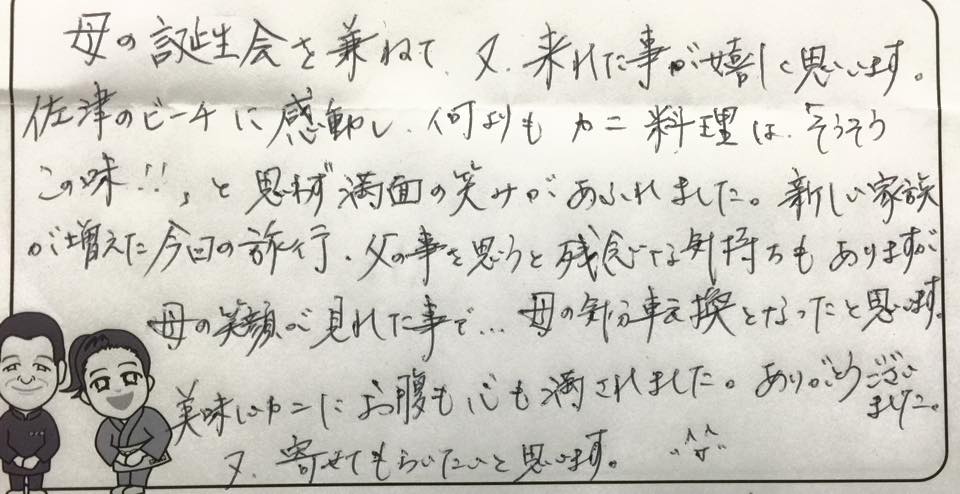 母の誕生会を兼ねて、又、来れた事が嬉しく思います。
佐津のビーチに感動し、何よりもカニ料理は、「そうそう
この味!!」と思わず満面の笑みがあふれました。新しい家族
が増えた今回の旅行、父の事を思うと残念な気持ちもありますが
母の笑顔が見れた事で… 母の気分転換となったと思います。
美味しいカニにお腹も心も満されました。ありがとうござい
ました。
又、寄せてもらいたいと思います。